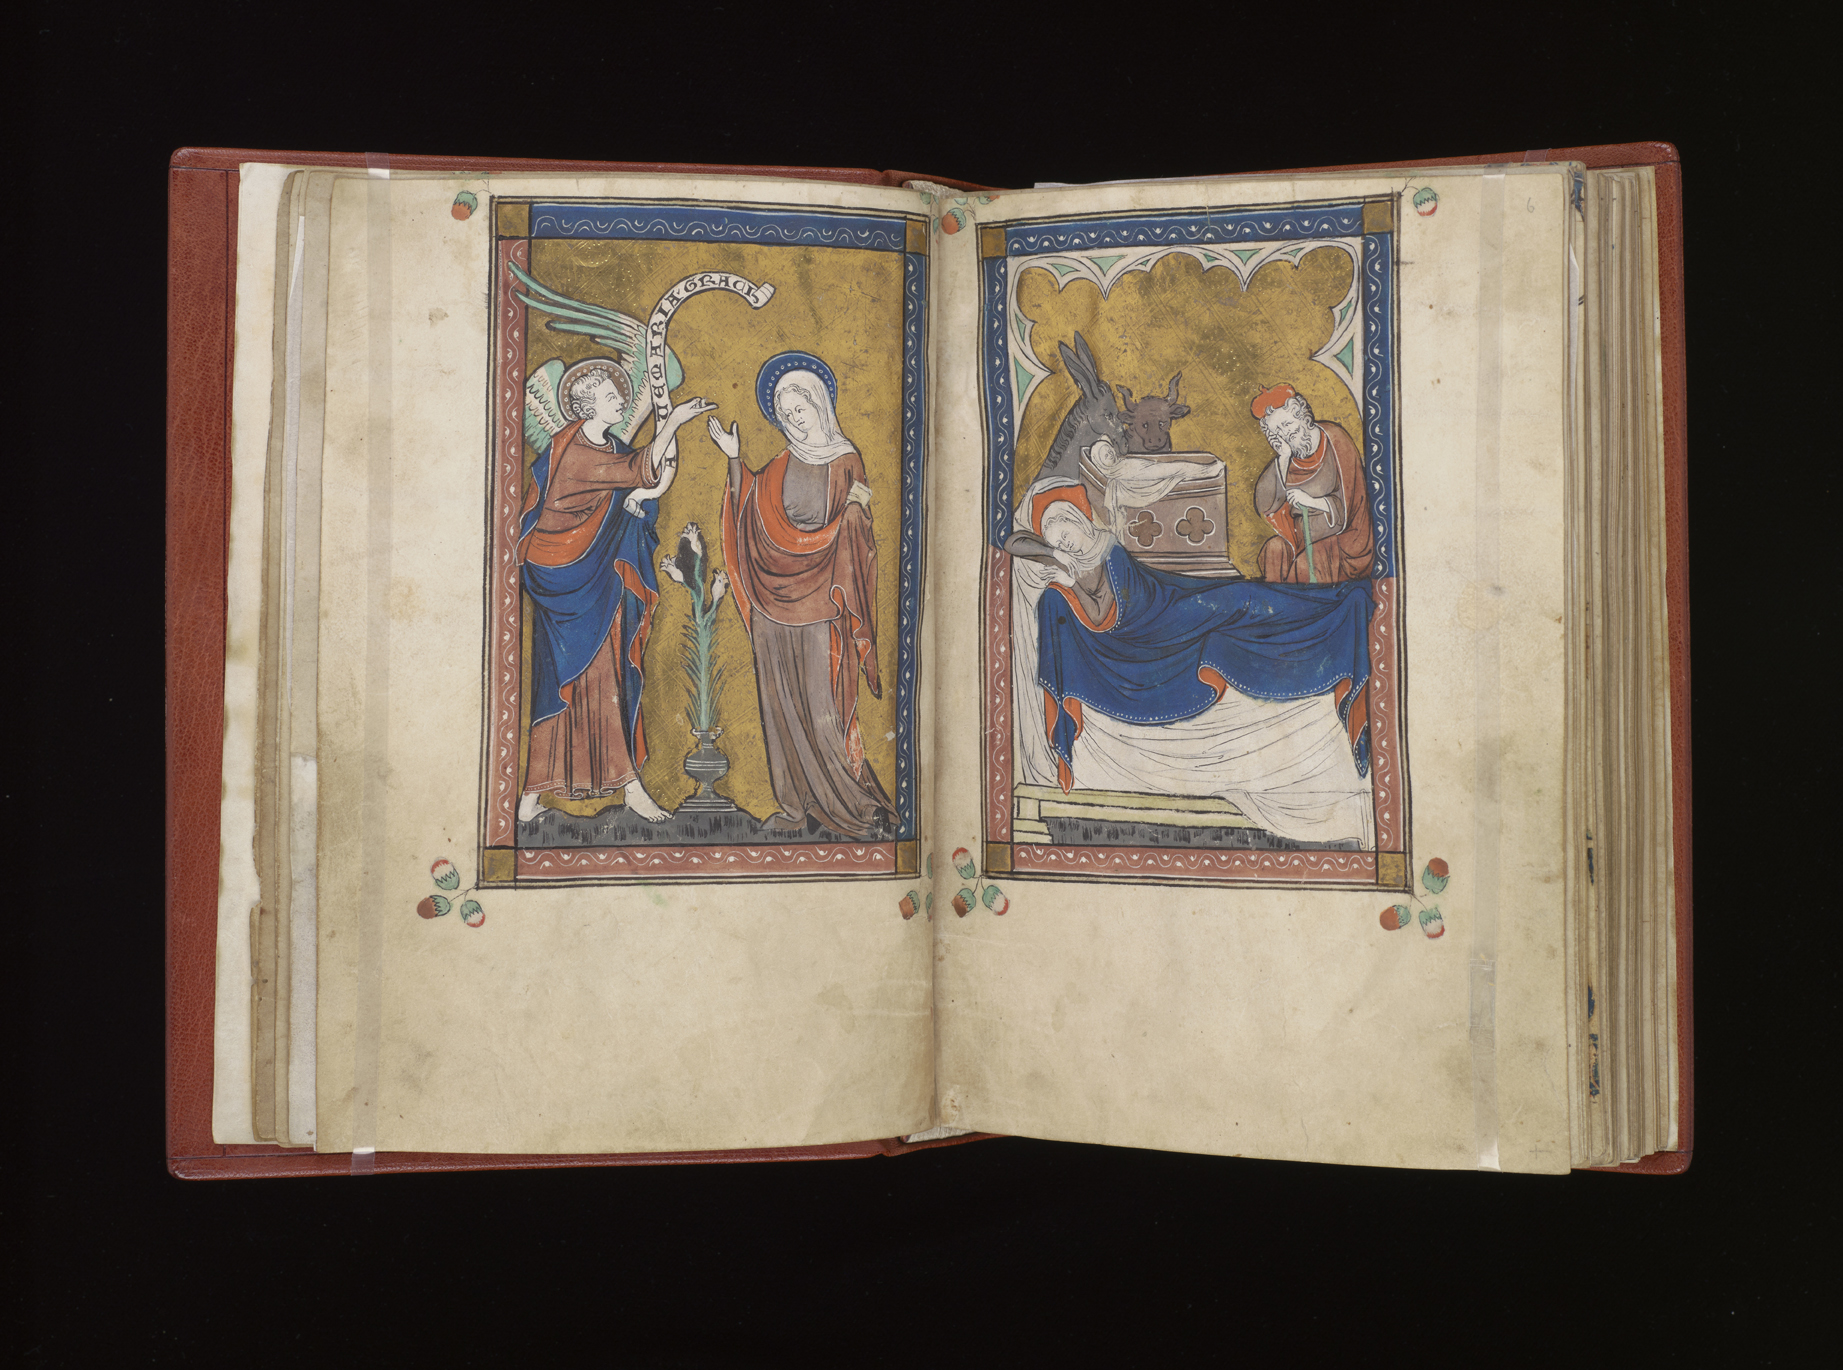 AUEMARIA·GRACI
6